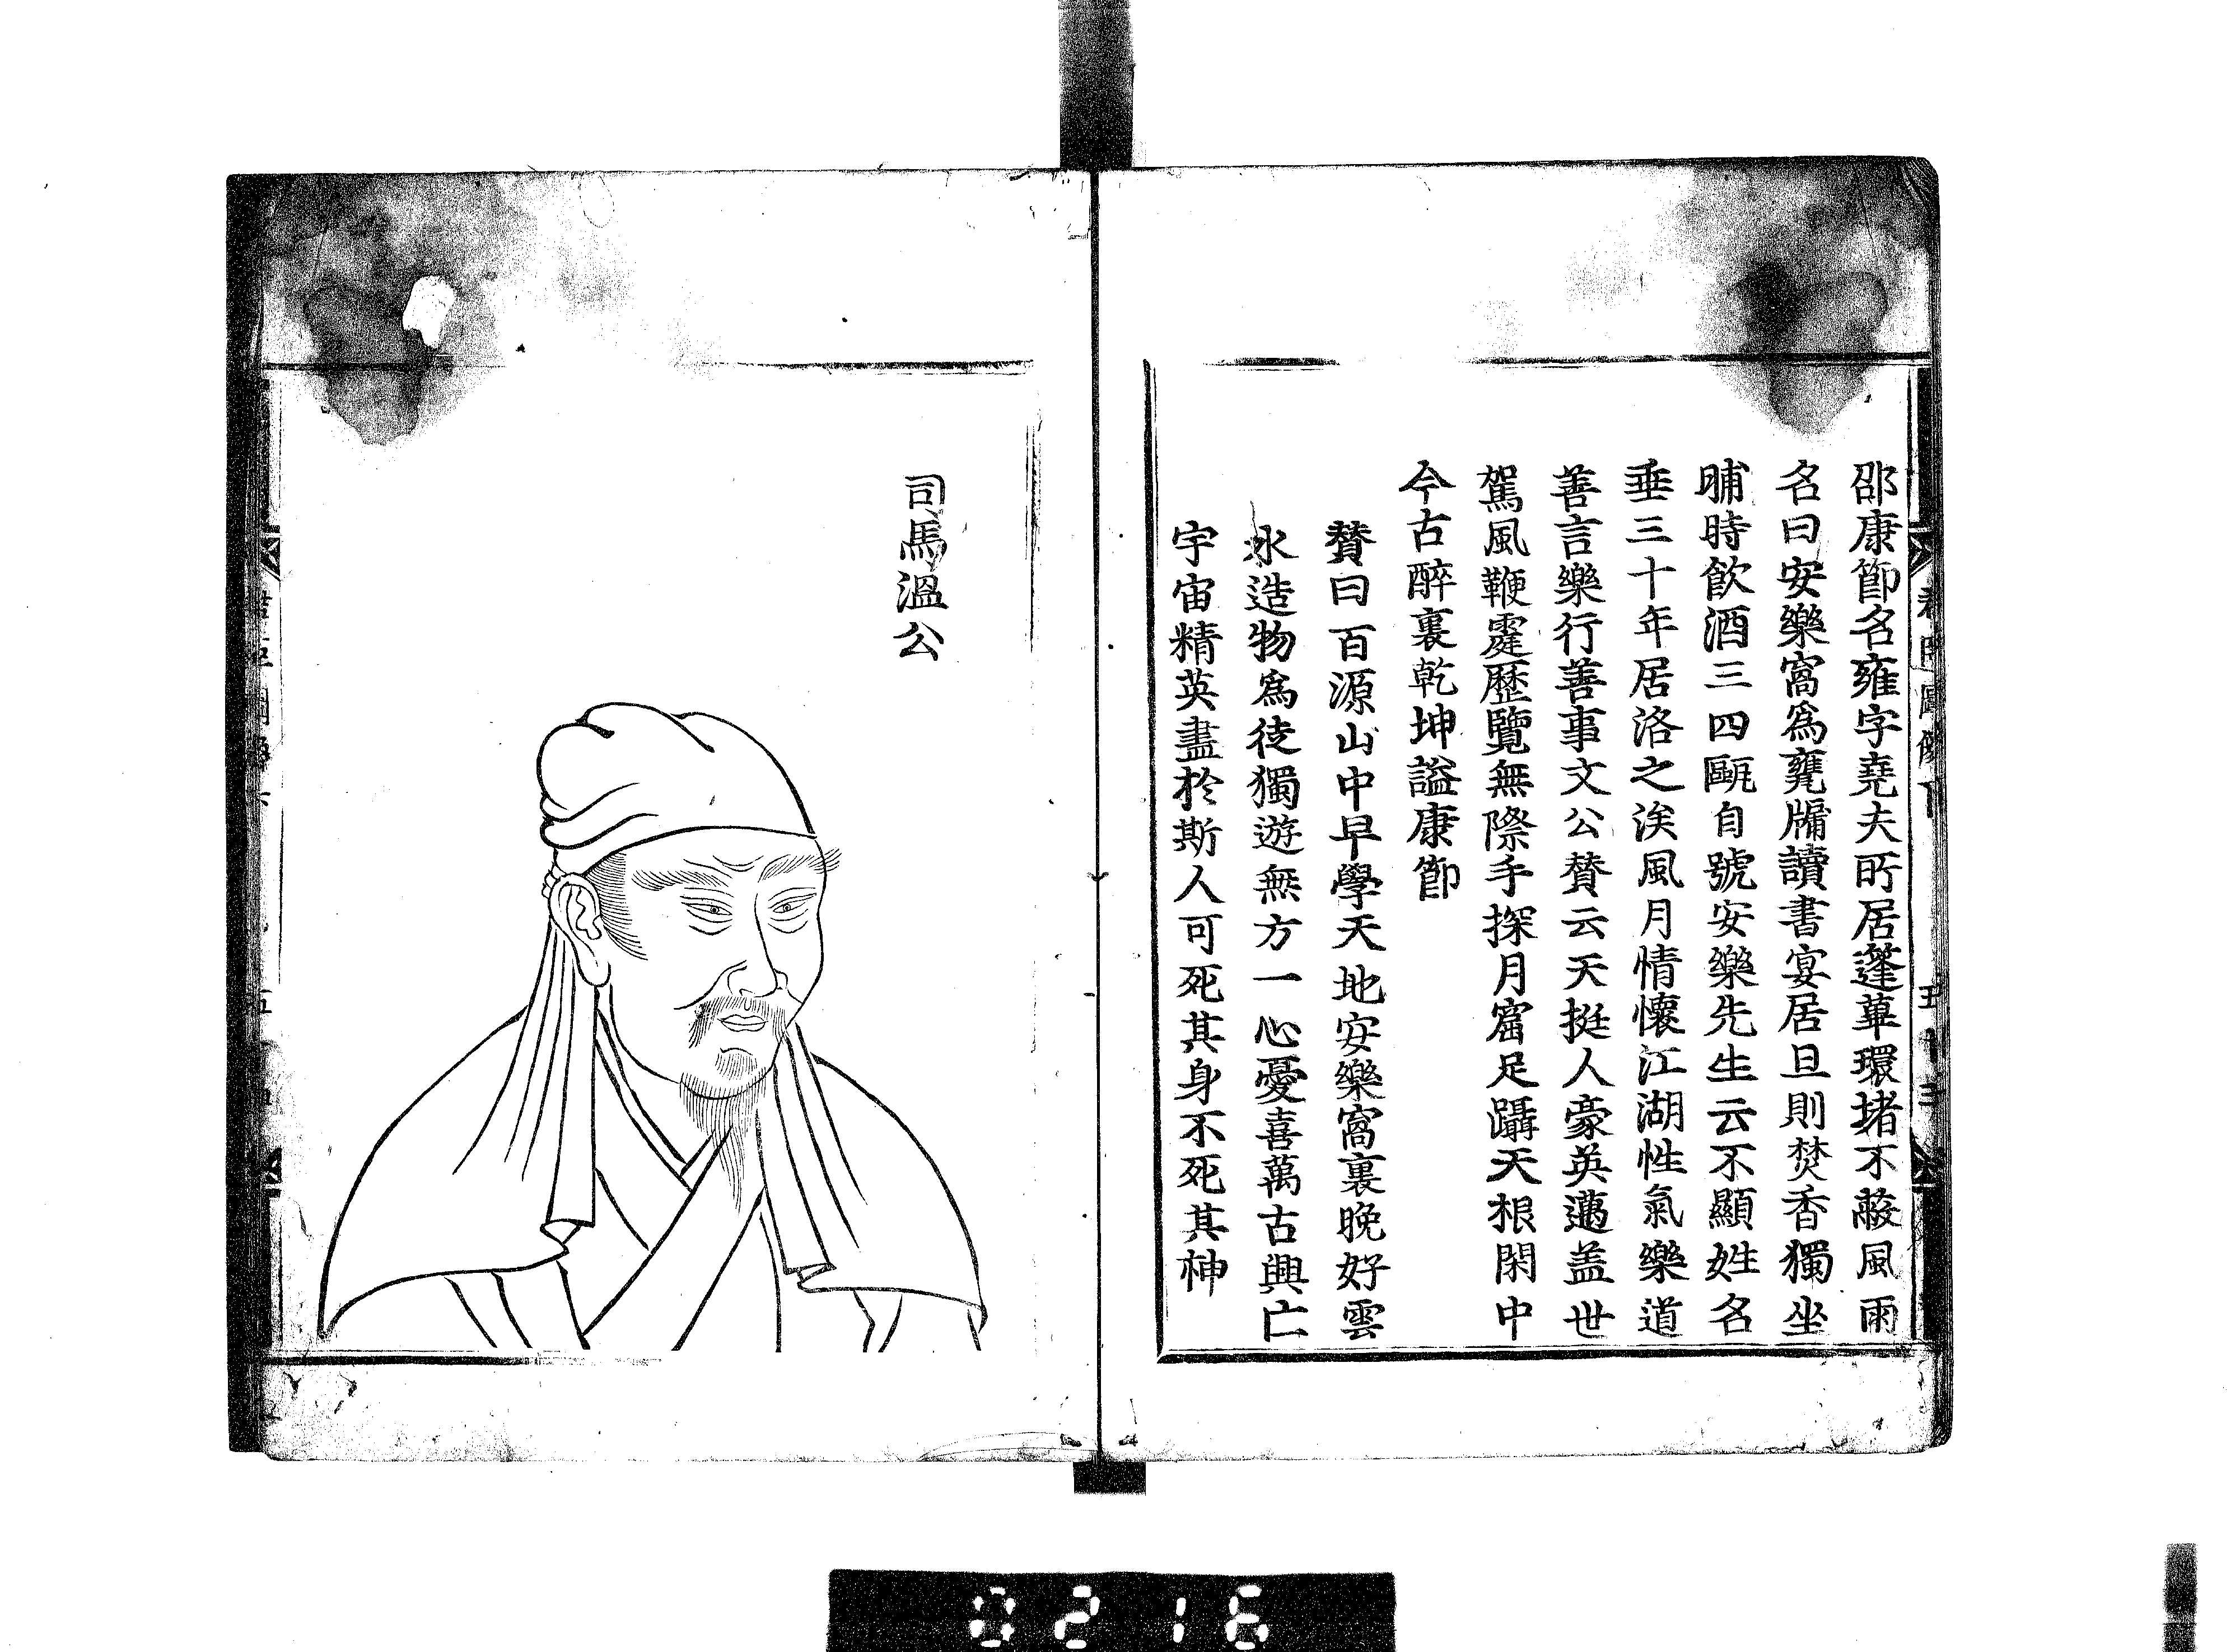 邵康節名雍字堯夫所居蓬蓽環堵不蔽風雨
名曰安樂窩爲甕牖讀書宴居旦則焚香獨坐
晡時飲酒三四甌自號安樂先生云不顯姓名
垂三十年居洛之涘風月情懷江湖性氣樂道
善言樂行善事文公賛云天挺人豪英邁盖世
駕風鞭霆歷覽無際手探月窟足躡天根閑中
今古醉裏乾坤謚康節
賛曰百源山中早學天地安樂窩裏晚好雲
水造物爲徒獨遊無方一心憂喜萬古興亡
宇宙精英盡於斯人可死其身不死其神
司馬溫公
0216